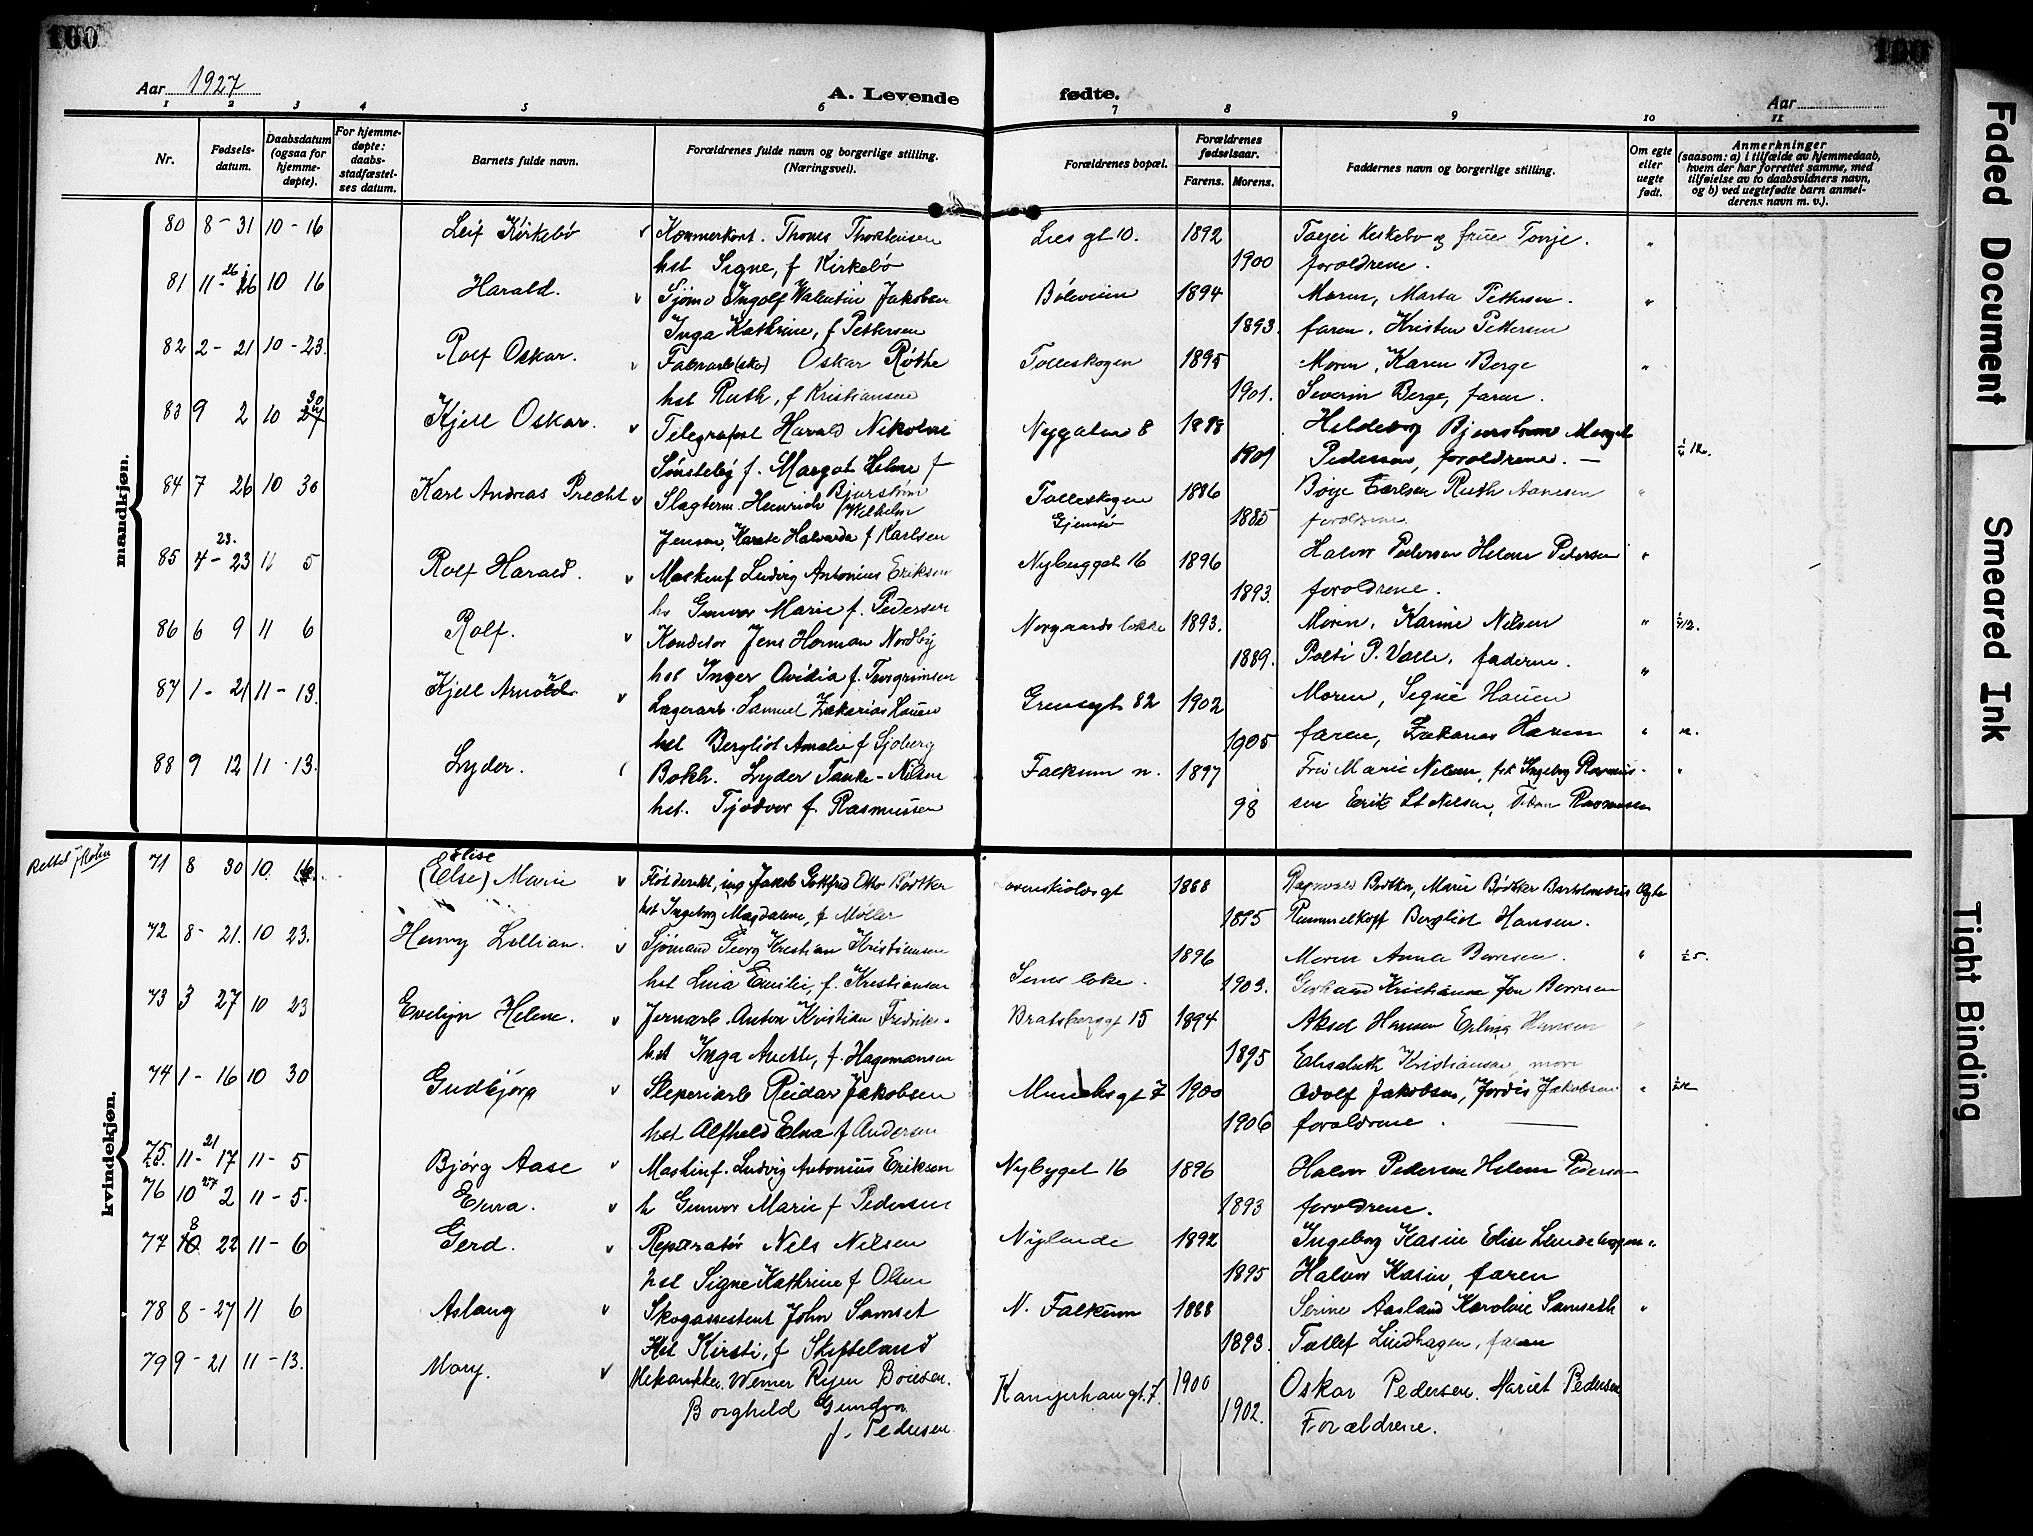 160
160
Aar 1927
A. Levende
fødte.
Aar
1 2 3 4 5 6 7 8 9 10 11
Nr.
Fødsels-
datum.
Daabsdatum
(ogsaa for
hjemme-
døpte).
For hjemme-
døpte:
daabs-
stadfæstel-
ses datum.
Barnets fulde navn.
Forældrenes fulde navn og borgerlige stilling.
(Næringsvei).
Forældrenes bopæl.
Forældrenes
fødselsaar.
Farens. Morens.
Faddernes navn og borgerlige stilling.
Om egte
eller
uegte
født.
Anmerkninger
(saasom: a) i tilfælde av hjemmedaab,
hvem der har forrettet samme, med
tilføielse av to daabsvidners navn,
og b) ved uegtefødte barn anmel-
derens navn m. v.).
mandkjøn.
80 8 - 31 10 - 16 Leif Kirkebø Thorstensen Lies gt 10. 1892 Kirkebø og frue Tonje. "
hst Signe, f Kirkebø 1900 foreldrene.
81 11 - 26 26 10 16 Harald. Sjøm Ingolf Valentin Jakobsen Bøleveien 1894 Moren, Marta Pettersen. "
Inga Kathrine, f Pettersen 1893. faren, Kristen Pettersen
82 2 - 21 10 - 23. Rolf Oskar. Oskar Røthe Tolleskogen 1895 Moren, Karen Berge "
hst Ruth, f Kristiansen 1901. Severin Berge, faren.
83 9 2 10 30 27 Kjell Oskar. Telegrafist Harald Nikolai Nygaten 8 1898
Sønstebÿ f. Margot Helene f 1901 Pedersen, foreldrene. —
Bjurstrøm
84 7 26 10 30 Karl Andreas Precht Slagterm. Heinrich Wilhelm Tolleskogen 1886 Børje Carlsen Ruth Aanesen "
Gjemsø
Jensen, Karete Halvarda f Karlsen 1885 foreldrene
85 4 - 23. 23 11 5 Rolf Harald. Maskinf Ludvig Antonius Eriksen Nybyggt 16 1896 Halvor Pedersen Helene Pedersen "
hs Gunvor Marie f. Pedersen 1893. foreldrene.
86 6 9 11 6 Rolf. Konditor Jens Herman Nordby Norgaards løkke 1893. Moren, Karine Nilsen "
hst Inger Ovidia f. Torgrimsen 1889. P. Valle, faderne. "
87 1 - 21 11 - 13. Kjell Arnold Lagerarb. Samuel Zakarias Hauen Grensegt 82 1902 Moren, Signe Hauen
hst Bergliot Amalie f Sjøberg 1905 faren, Zakarias Hauen "
88 9 12 11 - 13. Lyder. Bokh. Lyder Tanke-Nilsen Falkum n. 1897 Fru Marie Nilsen, frk Ingeborg Rasmus- "
hst. Tjodvor f Rasmussen 98 sen Erik St Nilsen, Rasmussen
kvindekjøn.
Rettet
71 8 30 10. 16. Elise (Else) Marie Jakob Gottfred Otto Bødtker Løvenskioldsgt 1888 Ragnvald Bødtker, Marie Bødtker Egte
hst Ingeborg Magdalene, f Møller 1895 Rummelhoff Bergliot Hansen.
72 8 - 21. 10 23. Henny Lillian. Sjømand Georg Kristian Kristiansen 1896 Moren Anna Berresen. "
hst Lina Emilie, f. Kristiansen løkke. 1903.
73 3 27 10 23 Evelyn Helene. Jernarb. Anton Kristian Fredriks. Bratsberggt 15 1894 Aksel Hansen Erling Hansen "
hst Inga Anette, f. Hagemansen 1895 Elisabeth Kristiansen, moren
74 1 - 16 10 30 Gudbjørg Sleperiarb Reidar Jakobsen Munchs gt 7 1900 Adolf Jakobsen, Jordis Jakobsen "
hst Alfhild Elna f Andersen 1906 foreldrene.
75. 11 - 21 17 11 - 5 Bjørg Aase Maskinf. Ludvig Antonius Eriksen Nybyget 16 1896 Halvor Pedersen Helene Pedersen
76 10 27 2 11 - 5. Erna. h Gunvor Marie f Pedersen 1893 foreldrene.
77 8 10 22 11 - 6 Gerd. Reparatør Nels Nilsen Nylende 1892 Ingeborg Kasin Elise "
hst Signe Kathrine f Olsen 1895 Halvor Kasin, faren
78 8 - 27 11 6 Aslaug Skogassestent John Samset N. Falkum 1888 Serine Aasland Karoline Samseth "
Hst Kirsti, f Skifteland 1893. Tallef Lindhagen, faren
79 9 - 21 11 - 13. Mary. Mekaniker. Werner Ryen Boiesen. Kanjerhaugt. 7. 1900 Oskar Pedersen. Mariet Pedersen
Borghild Gundva 1902. Forældrene.
f. Pedersen.
Faded Document
Smeared Ink
Tight Binding